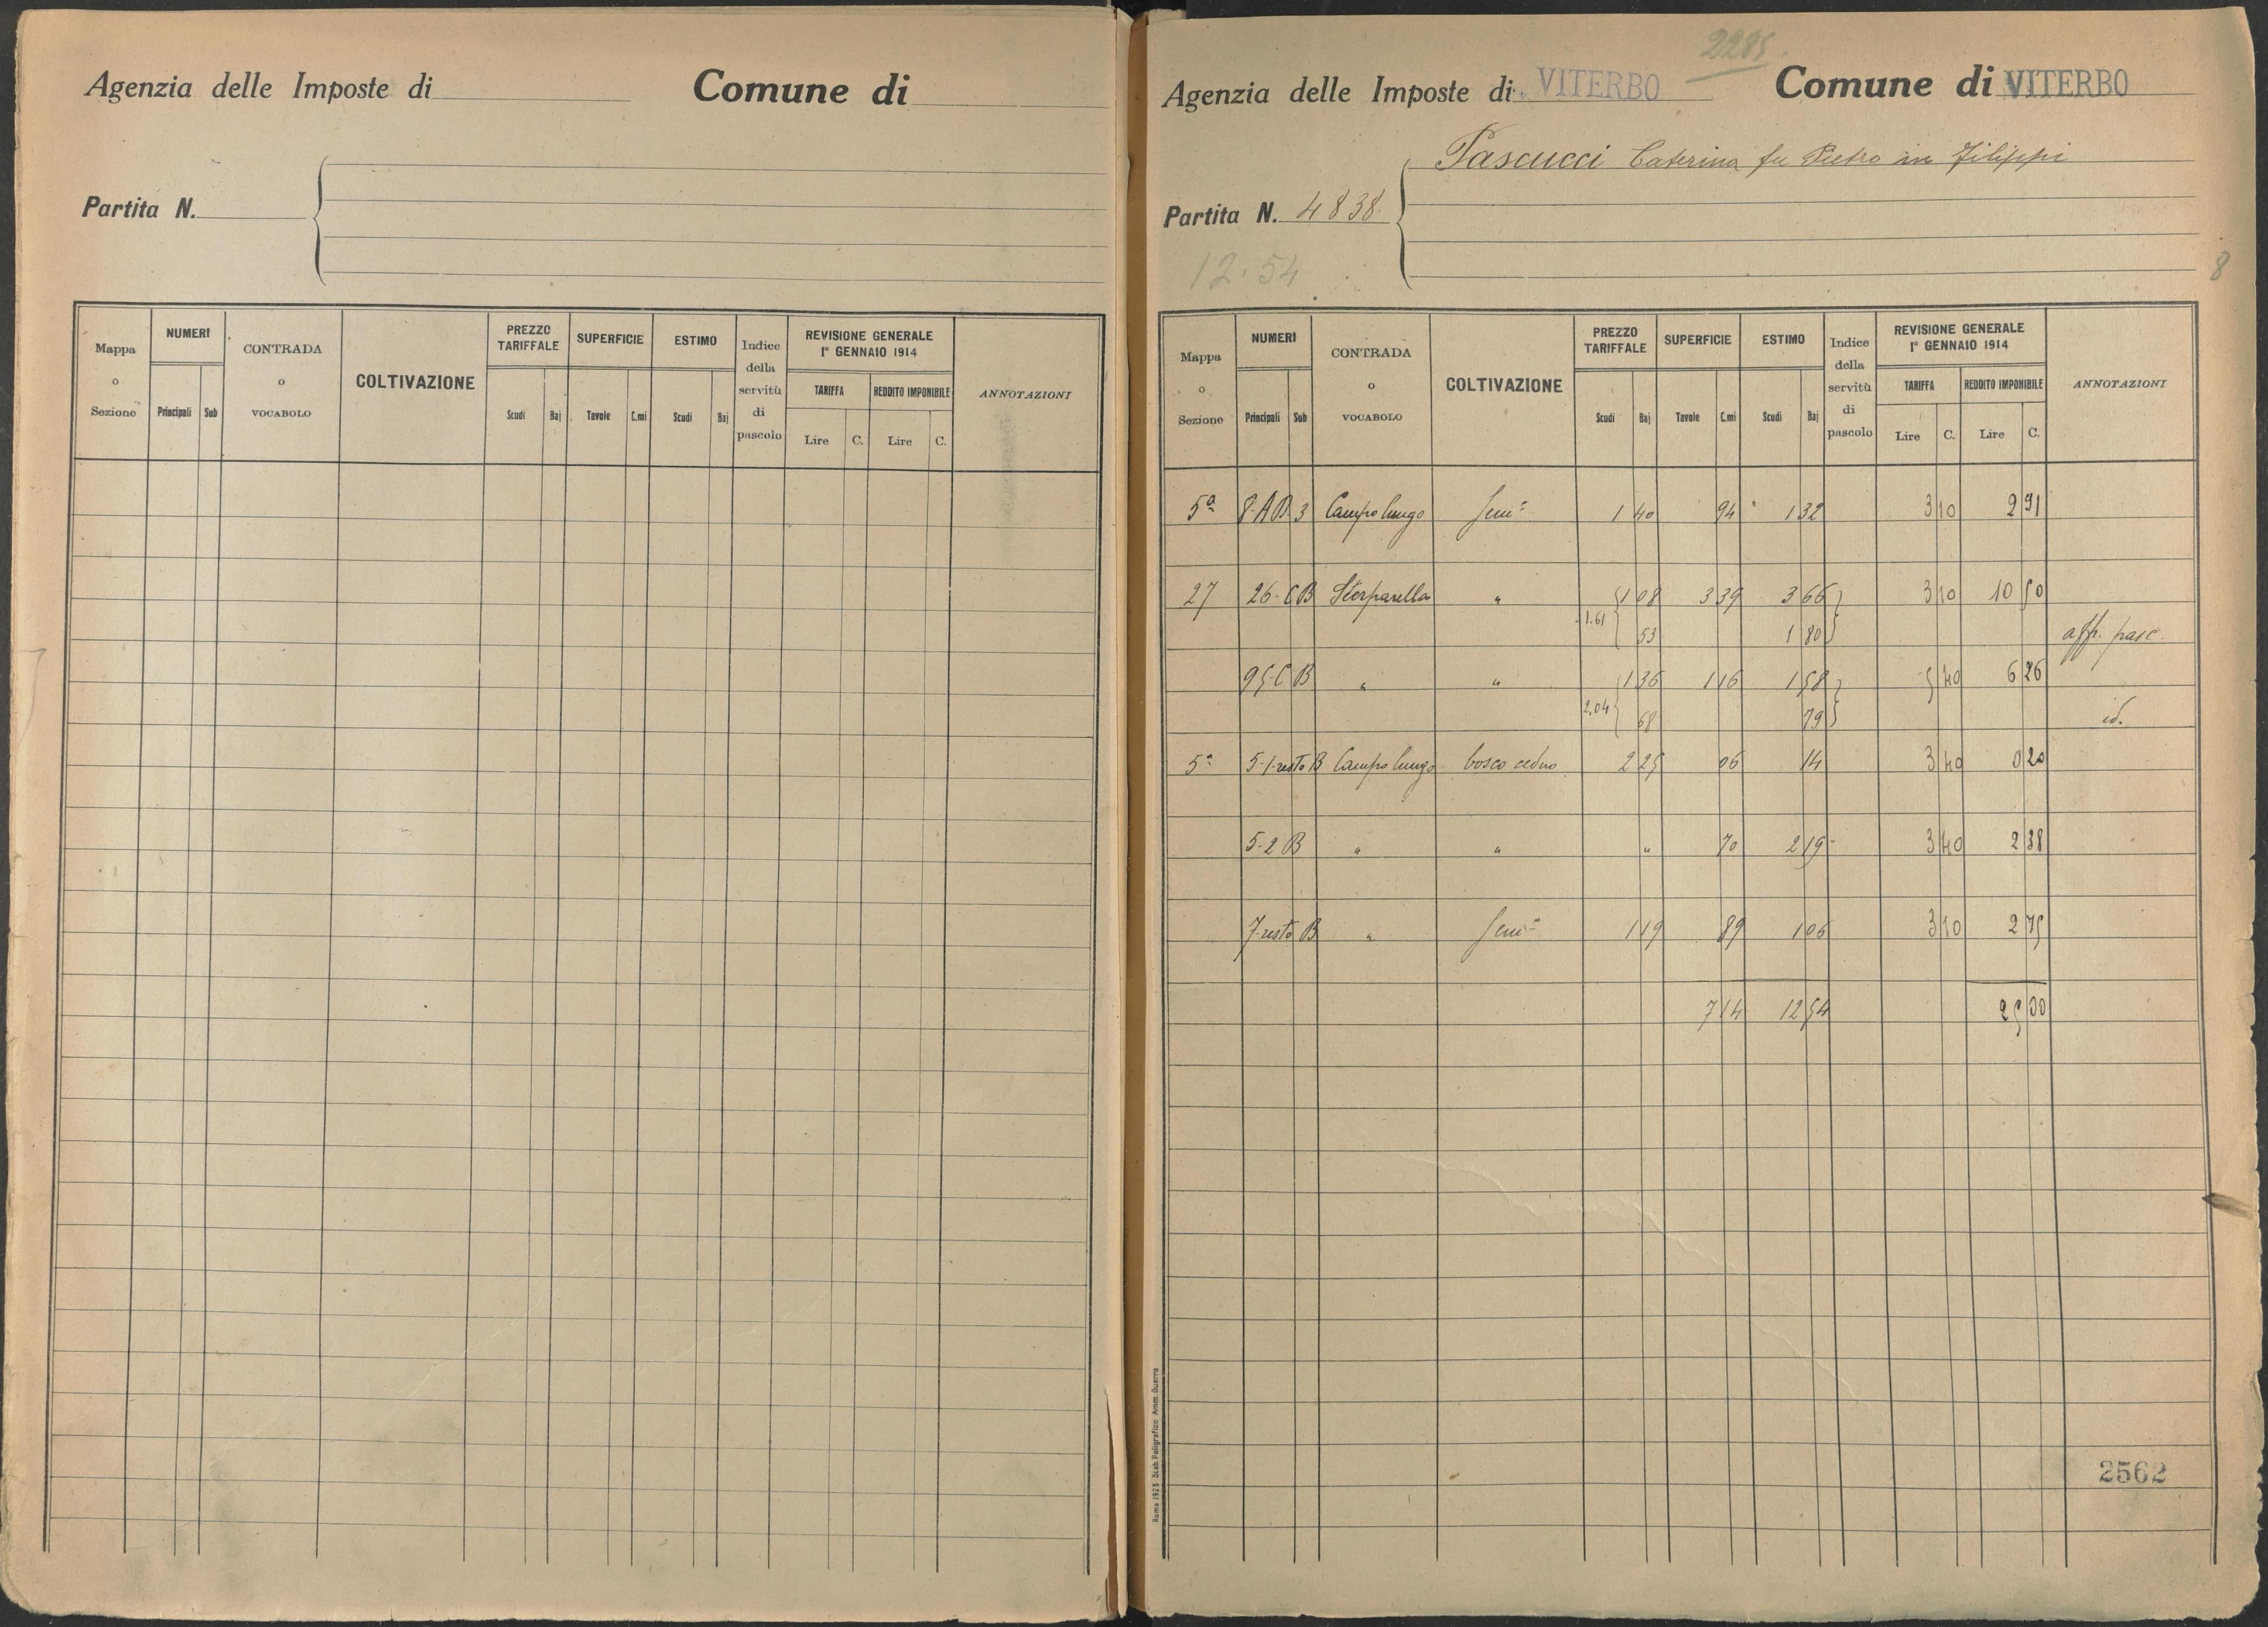 Agenzia delle Imposte di Comune di
Partita N.
Mappa o Sezione NUMERI Principali Sub CONTRADA o VOCABOLO COLTIVAZIONE PREZZO TARIFFALE Scudi Baj SUPERFICIE Tavole C.mi ESTIMO Scudi Baj Indice della servitù di pascolo REVISIONE GENERALE 1° GENNAIO 1914 TARIFFA Lire C. REDDITO IMPONIBILE Lire C. ANNOTAZIONI
2285
Agenzia delle Imposte di VITERBO Comune di VITERBO
Pascucci Caterina fu Pietro in Filippi
Partita N. 4838
12.54
8
Mappa o Sezione NUMERI Principali Sub CONTRADA o VOCABOLO COLTIVAZIONE PREZZO TARIFFALE Scudi Baj SUPERFICIE Tavole C.mi ESTIMO Scudi Baj Indice della servitù di pascolo REVISIONE GENERALE 1° GENNAIO 1914 TARIFFA Lire C. REDDITO IMPONIBILE Lire C. ANNOTAZIONI
5ª 8-AB 3 Campo lungo Sem° 1 40 94 1 32 3 10 2 91
27 26-C B Sterparella " 1 08 3 39 3 66 3 10 10 50
1.61 53 1 80 aff. pasc.
95-C B " " 1 36 1 16 1 58 5 40 6 26
2.04 68 79 id.
5ª 5-1-resto B Campo lungo bosco ceduo 2 25 06 14 3 40 0 20
5-2 B " " " 70 2 19 3 40 2 38
7-resto B " Sem° 1 19 89 1 06 3 10 2 75
7 14 12 54 25 00
2562
Roma 1923 Stab. Poligrafico Amm. Guerra